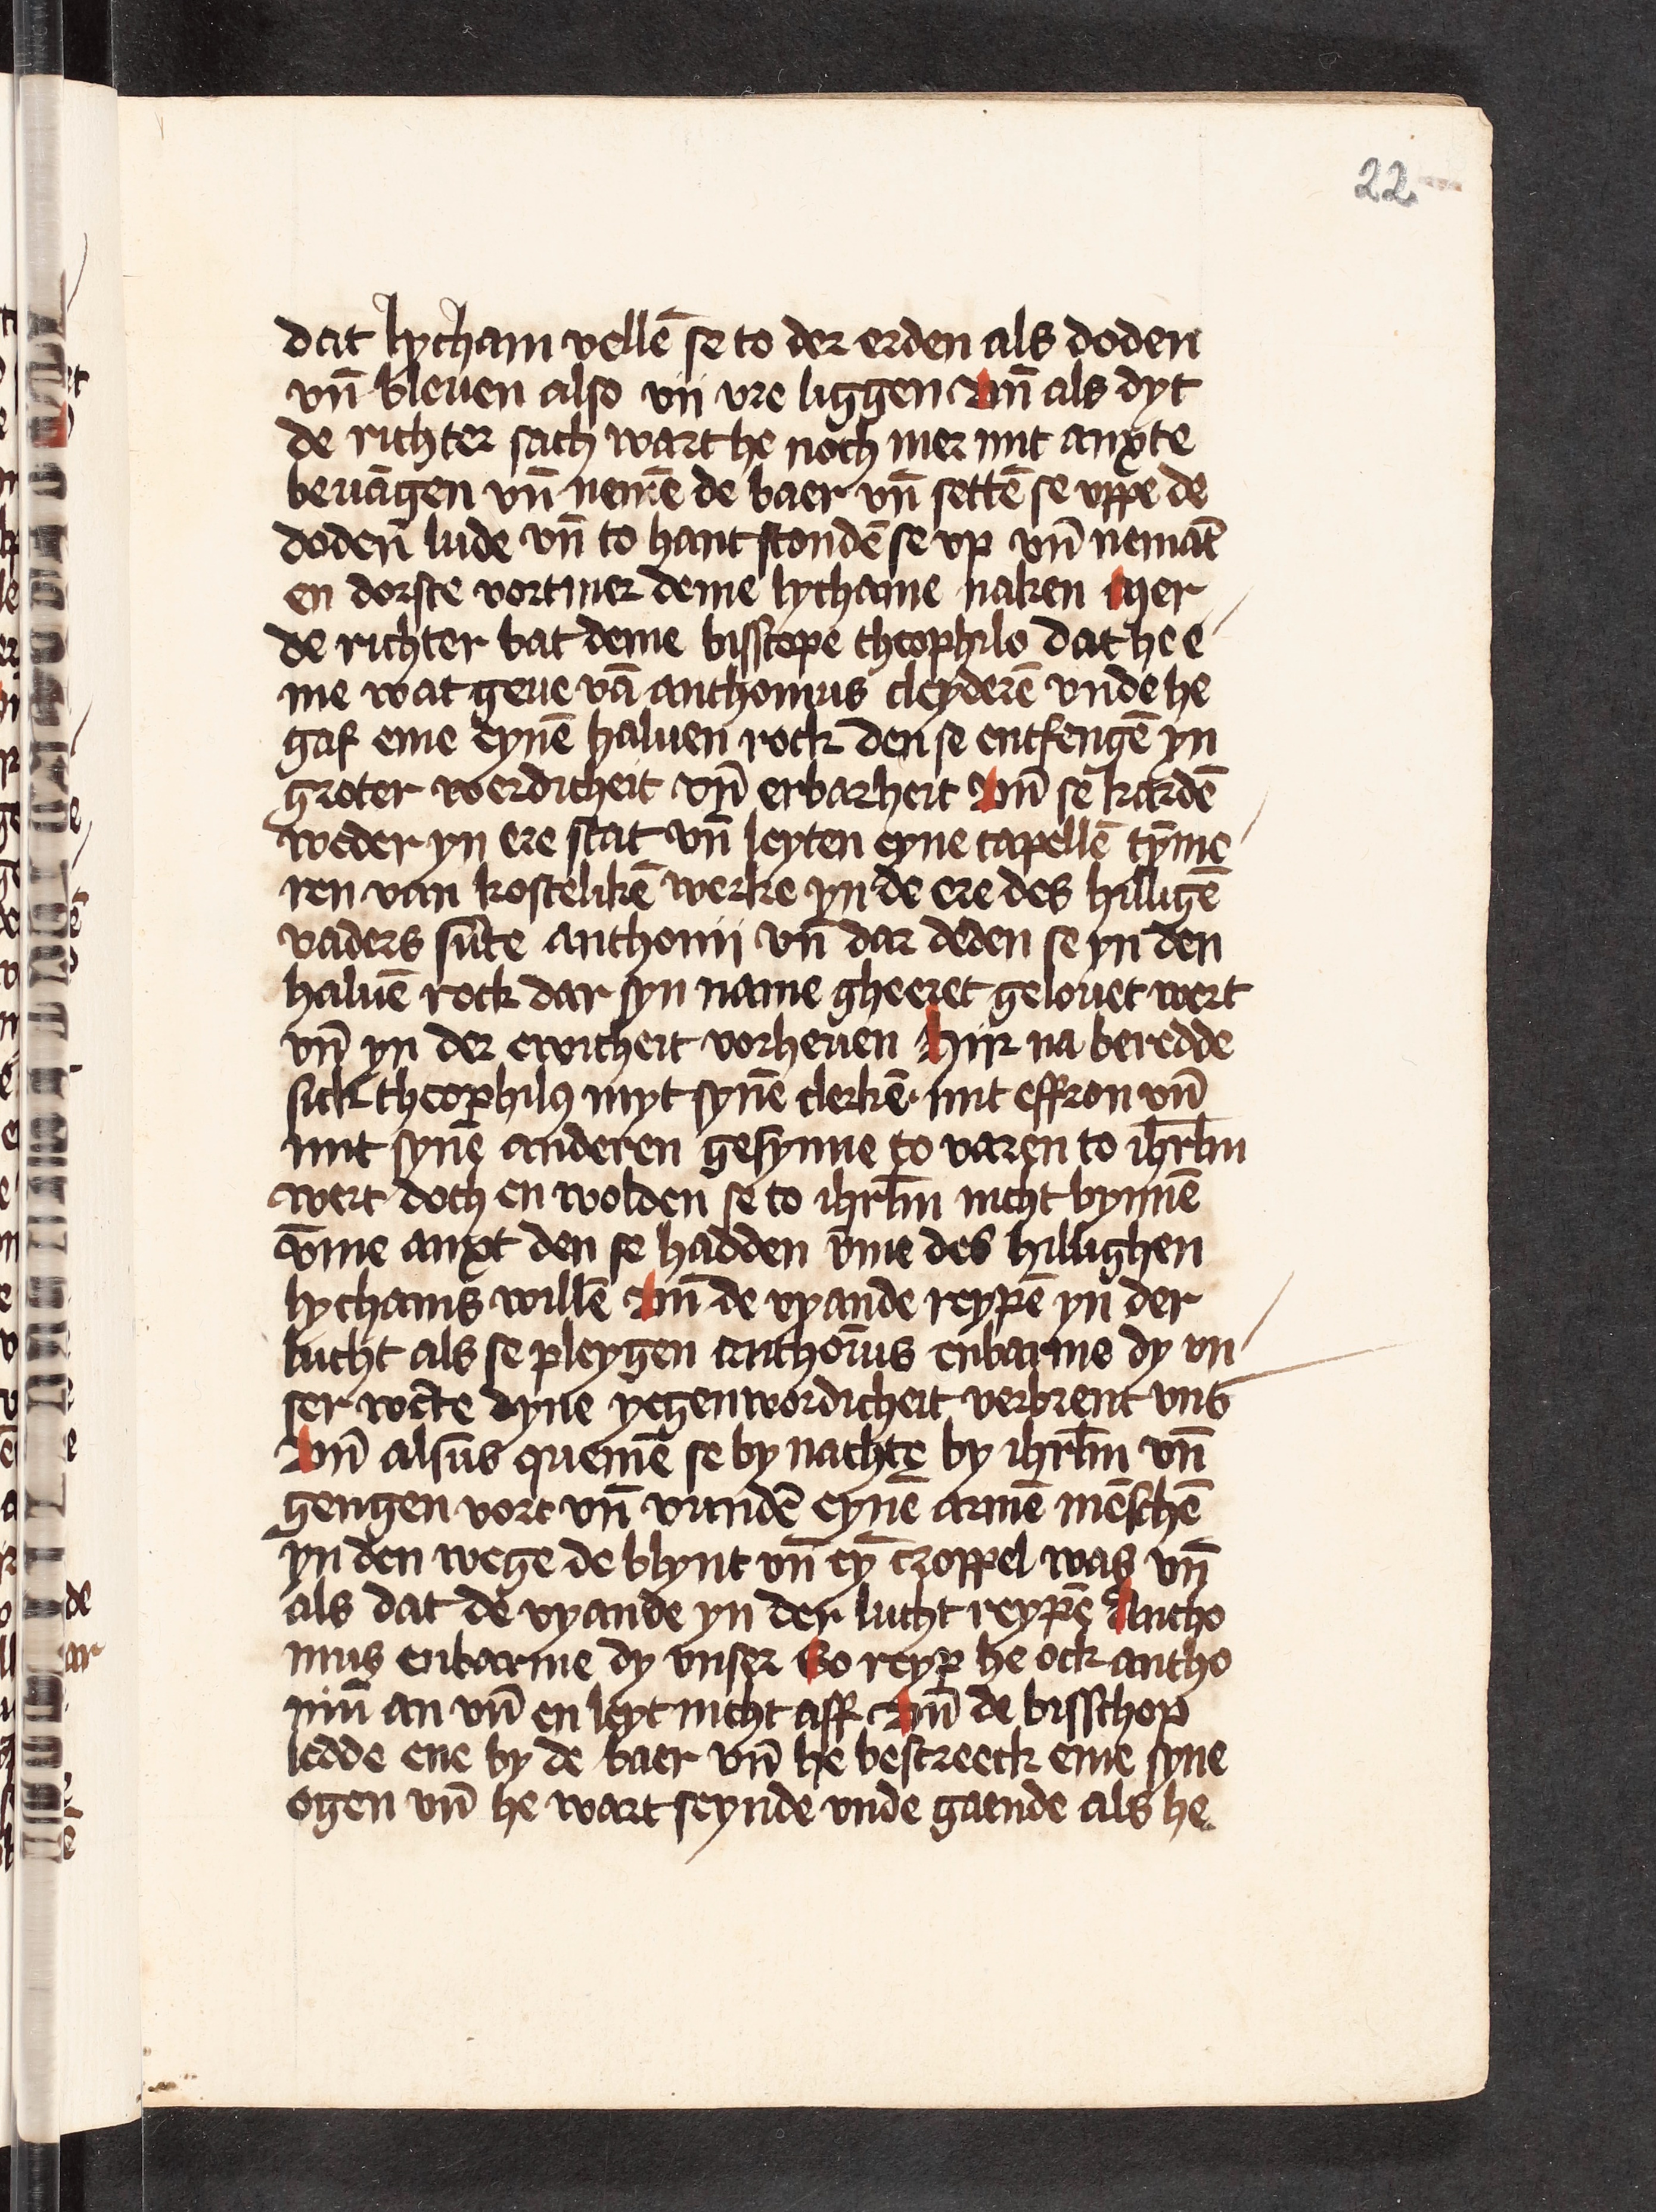 22
dat lycham vellē se to der erden als doden
vn̄ bleuen also vij vre liggen Vn̄ als dyt
de richter sach wart he noch mer mit anxte
beuāgen vn̄ nemē de baer vn̄ settē se vppe de
doden̄ lude vn̄ to hant stondē se vp vn̄ nemāt
en dorste vortmer deme lychame naken Mer
de richter bat deme bisscope theophilo dat he e
me wat geue vā anthonius cleyderē vnde he
gaf eme eynē haluen rock den se entfengē yn
groter werdicheit vn̄ erbarheit Vn̄ se kardē
weder yn ere stat vn̄ leyten eyne capellē tȳme
ren van kostelikē werke yn de ere des hilligē
vaders sūte anthonij vn̄ dar deden se yn den
haluē rock dar syn name gheeret gelouet wert
vn̄ yn der ewicheit vorheuen Hijr na beredde
sick theophilus myt synē clerkē mit effron vn̄
mit synē anderen gesynne to varen to ihrl̄m
wert doch en wolden se to ihrl̄m nicht bynnē
v̄me anxt den se hadden v̄me des hillighen
lychams willē Vn̄ de vyande reypē yn der
lucht als se pleygen anthoīus enbarme dy vn
ser wēte dyne yegenwordicheit verbrent vns
Vn̄ alsūs quemē se by nachte by ihrl̄m vn̄
gengen vort vn̄ vundē eynē armē mēschē
yn den wege de blynt vn̄ eȳ croppel was vn̄
als dat de vyande yn der lucht reypē Antho
nius enbarme dy vnser So reyp he ock antho
niū an vn̄ en leyt nicht aff Vn̄ de bisschop
ledde ene by de baer vn̄ he bestreeck eme syne
ogen vn̄ he wart seynde vnde gaende als he